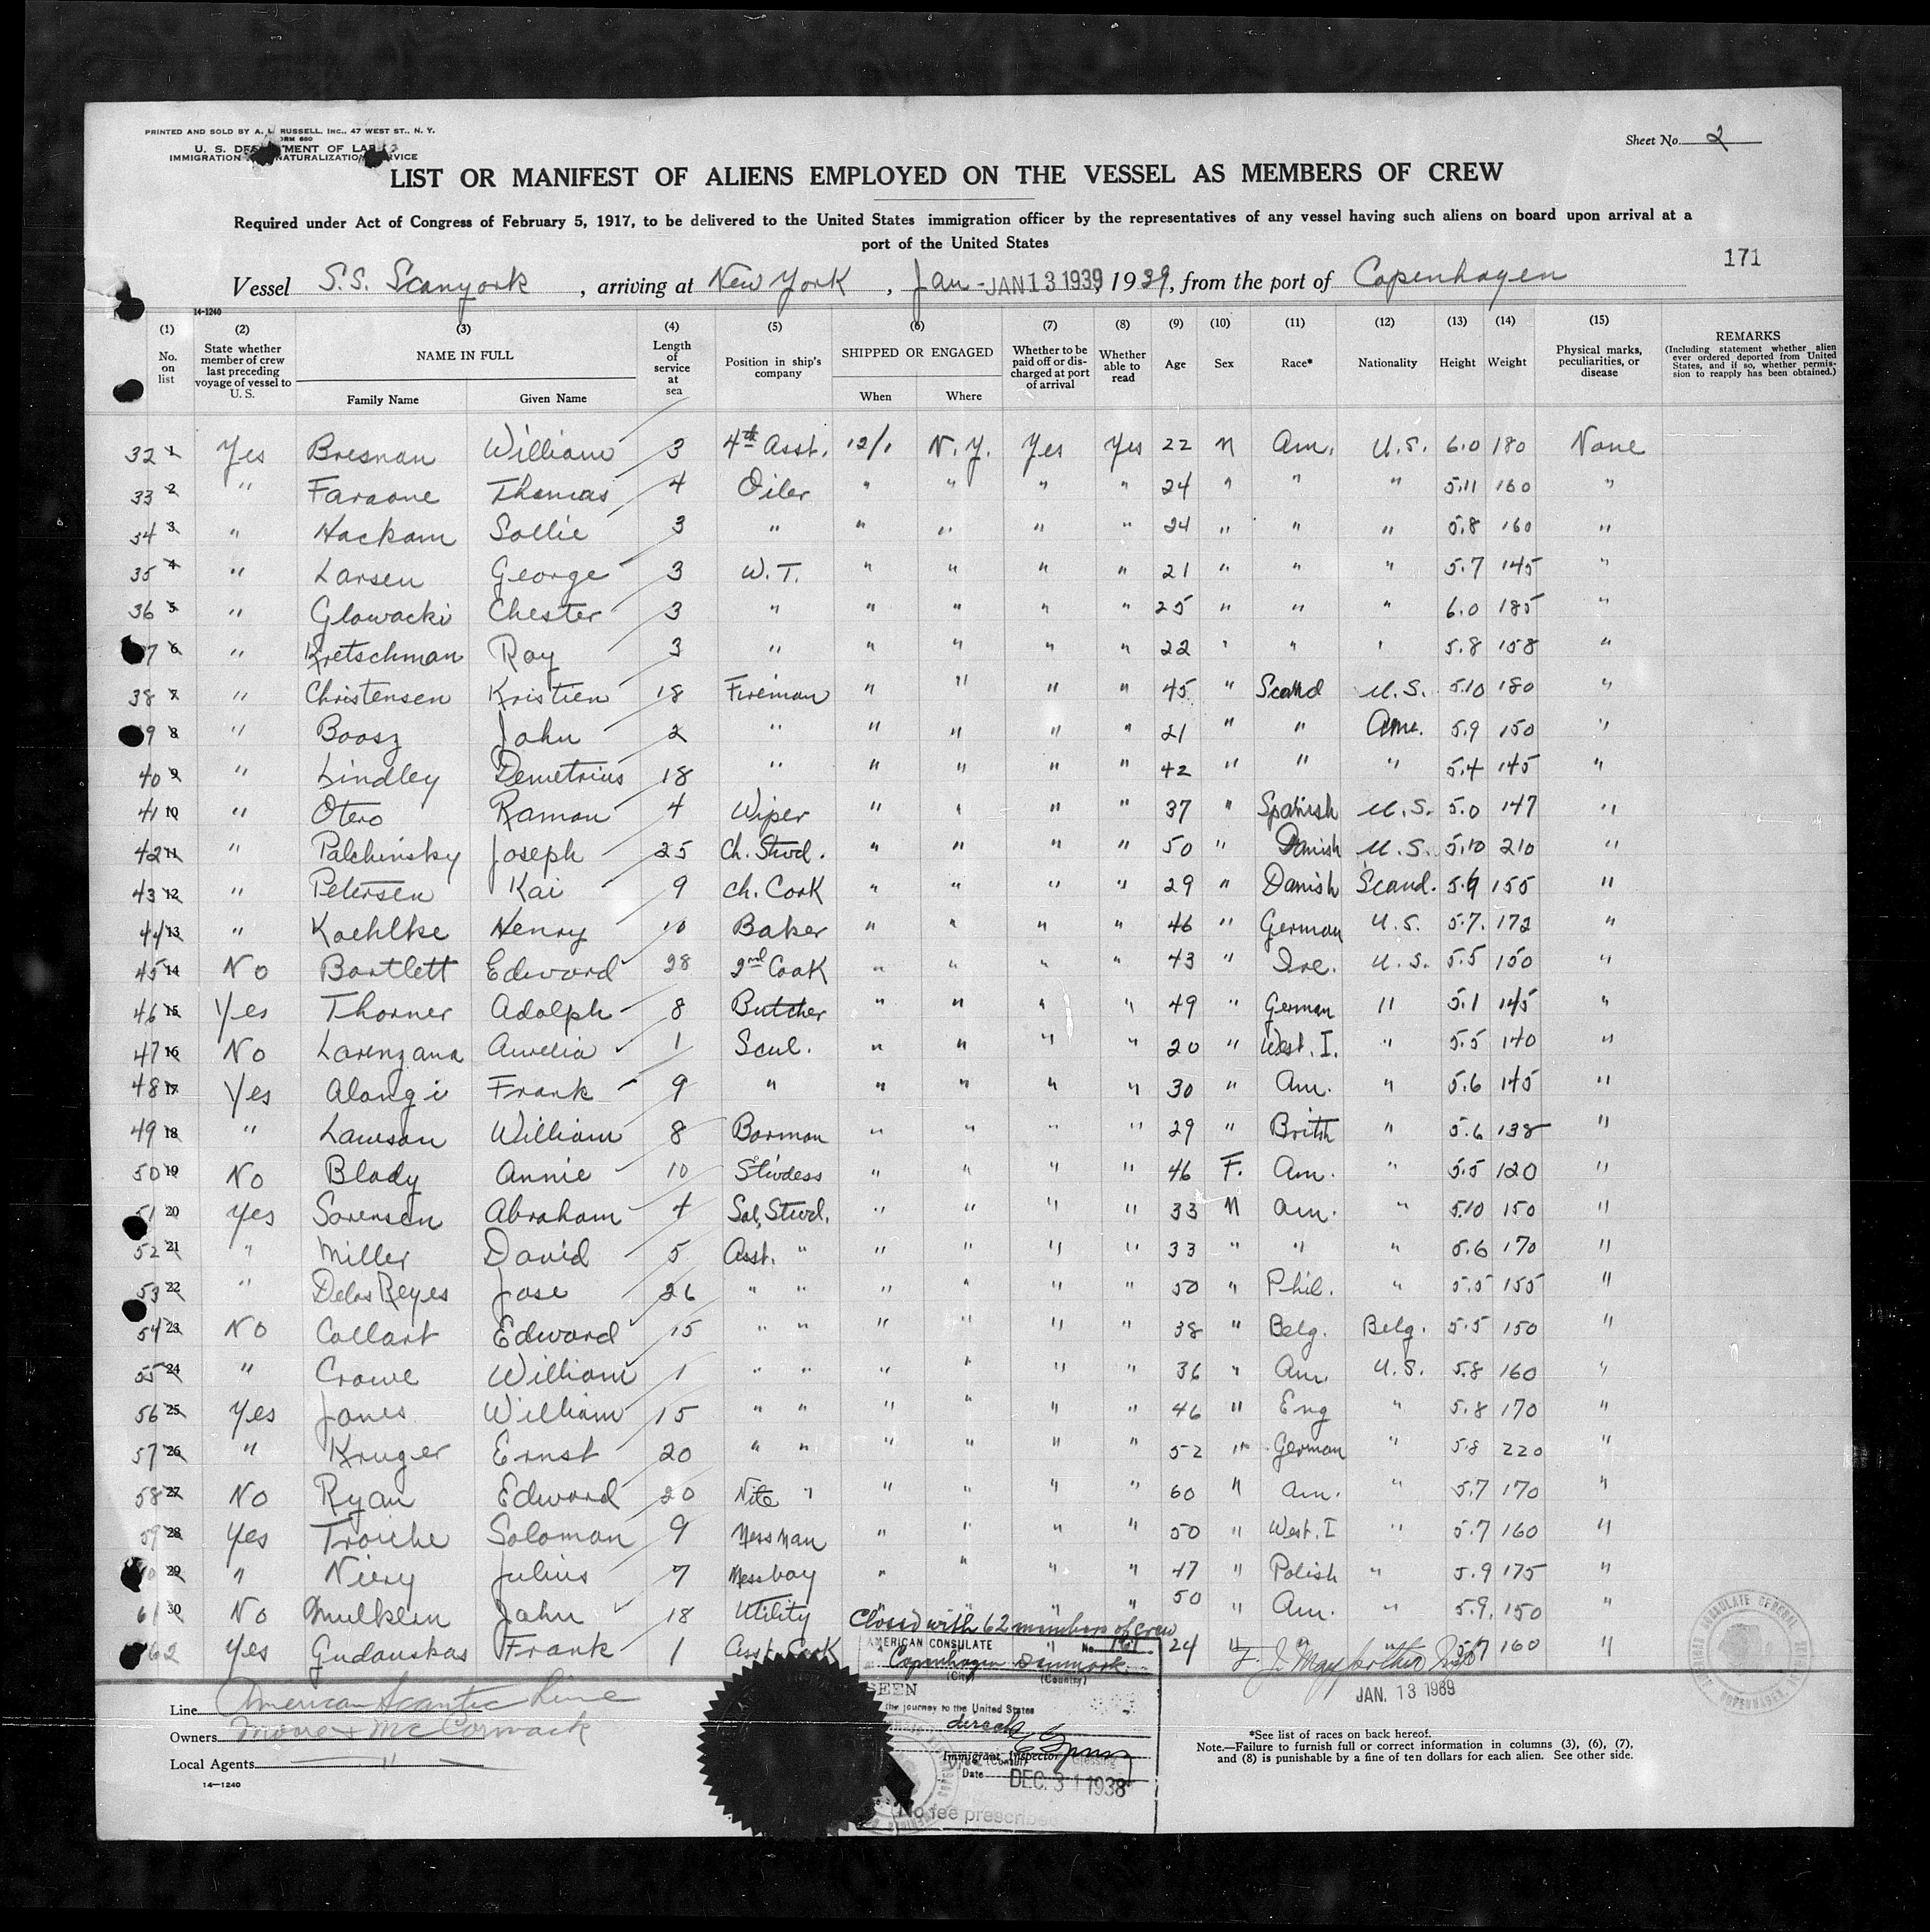 PRINTED AND SOLD BY A. L. RUSSELL, INC., 47 WEST ST., N. Y.
U. S. DEPARTMENT OF LABOR
IMMIGRATION NATURALIZATION SERVICE
Sheet No. 2
LIST OR MANIFEST OF ALIENS EMPLOYED ON THE VESSEL AS MEMBERS OF CREW
Required under Act of Congress of February 5, 1917, to be delivered to the United States immigration officer by the representatives of any vessel having such aliens on board upon arrival at a
port of the United States
171
Vessel S.S. Scanyork, arriving at New York, Jan - JAN 13 1939, 1939, from the port of Copenhagen
14-1240
(1) (2) (3) (4) (5) (6) (7) (8) (9) (10) (11) (12) (13) (14) (15)
No. on list State whether member of crew last preceding voyage of vessel to U. S. NAME IN FULL Family Name Given Name Length of service at sea Position in ship's company SHIPPED OR ENGAGED When Where Whether to be paid off or discharged at port of arrival Whether able to read Age Sex Race* Nationality Height Weight Physical marks, peculiarities, or disease REMARKS (Including statement whether alien ever ordered deported from United States, and if so, whether permission to reapply has been obtained.)
32 1 Yes Bresnan William 3 4th Asst. 12/1 N.Y. Yes Yes 22 M Am. U.S. 6.0 180 None
33 2 " Faraone Thomas 4 Oiler " " " " 24 " " " 5.11 160 "
34 3 " Hackam Sollie 3 " " " " " 24 " " " 5.8 160 "
35 4 " Larsen George 3 W.T. " " " " 21 " " " 5.7 145 "
36 5 " Glowacki Chester 3 " " " " " 25 " " " 6.0 185 "
37 6 " Kretschman Ray 3 " " " " " 22 " " " 5.8 158 "
38 7 " Christensen Kristien 18 Fireman " " " " 45 " Scand U.S. 5.10 180 "
39 8 " Boosz John 2 " " " " " 21 " " Ame. 5.9 150 "
40 9 " Lindley Demetrius 18 " " " " " 42 " " " 5.4 145 "
41 10 " Otero Ramon 4 Wiper " " " " 37 " Spanish U.S. 5.0 147 "
42 11 " Palchinsky Joseph 25 Ch. Stwd. " " " " 50 " Danish U.S. 5.10 210 "
43 12 " Petersen Kai 9 Ch. Cook " " " " 29 " Danish Scand. 5.9 155 "
44 13 " Koehlke Henry 10 Baker " " " " 46 " German U.S. 5.7. 172 "
45 14 No Bartlett Edward 28 2nd Cook " " " " 43 " Ire. U.S. 5.5 150 "
46 15 Yes Thorner Adolph 8 Butcher " " " " 49 " German " 5.1 145 "
47 16 No Lorenzana Aurelia 1 Scul. " " " " 20 " West. I. " 5.5 140 "
48 17 Yes Alongi Frank 9 " " " " " 30 " Am. " 5.6 145 "
49 18 " Lawson William 8 Barman " " " " 29 " Britsh " 5.6 138 "
50 19 No Blady Annie 10 Stwdess " " " " 46 F. Am. " 5.5 120 "
51 20 Yes Sorensen Abraham 4 Sal. Stwd. " " " " 33 M Am. " 5.10 150 "
52 21 " Miller David 5 Asst. " " " " " 33 " " " 5.6 170 "
53 22 " Delos Reyes Jose 26 " " " " " " 50 " Phil. " 5.5 155 "
54 23 No Collart Edward 15 " " " " " " 38 " Belg. Belg. 5.5 150 "
55 24 " Crowe William 1 " " " " " " 36 " Am. U.S. 5.8 160 "
56 25 Yes Jones William 15 " " " " " " 46 " Eng " 5.8 170 "
57 26 " Kruger Ernst 20 " " " " " " 52 " German " 5.8 220 "
58 27 No Ryan Edward 20 Nite " " " " " 60 " Am. " 5.7 170 "
59 28 Yes Troiche Solomon 9 Messman " " " " 50 " West. I " 5.7 160 "
60 29 " Niery Julius 7 Messboy " " " " 47 " Polish " 5.9 175 "
61 30 No Mulkern John 18 Utility " " " " 50 " Am. " 5.9. 150 "
Closed with 62 members of crew
62 Yes Gudauskas Frank 1 Asst. Cook " 24 " " " 5.7 160 "
AMERICAN CONSULATE No. 161
Copenhagen Denmark
(City) (Country)
SEEN
the journey to the United States
direct
Immigrant Inspector
Date DEC. 31 1938
No fee prescribed
JAN. 13 1939
Line American Scantic Line
Owners Moore & McCormack
Local Agents "
14—1240
*See list of races on back hereof.
Note.—Failure to furnish full or correct information in columns (3), (6), (7),
and (8) is punishable by a fine of ten dollars for each alien. See other side.